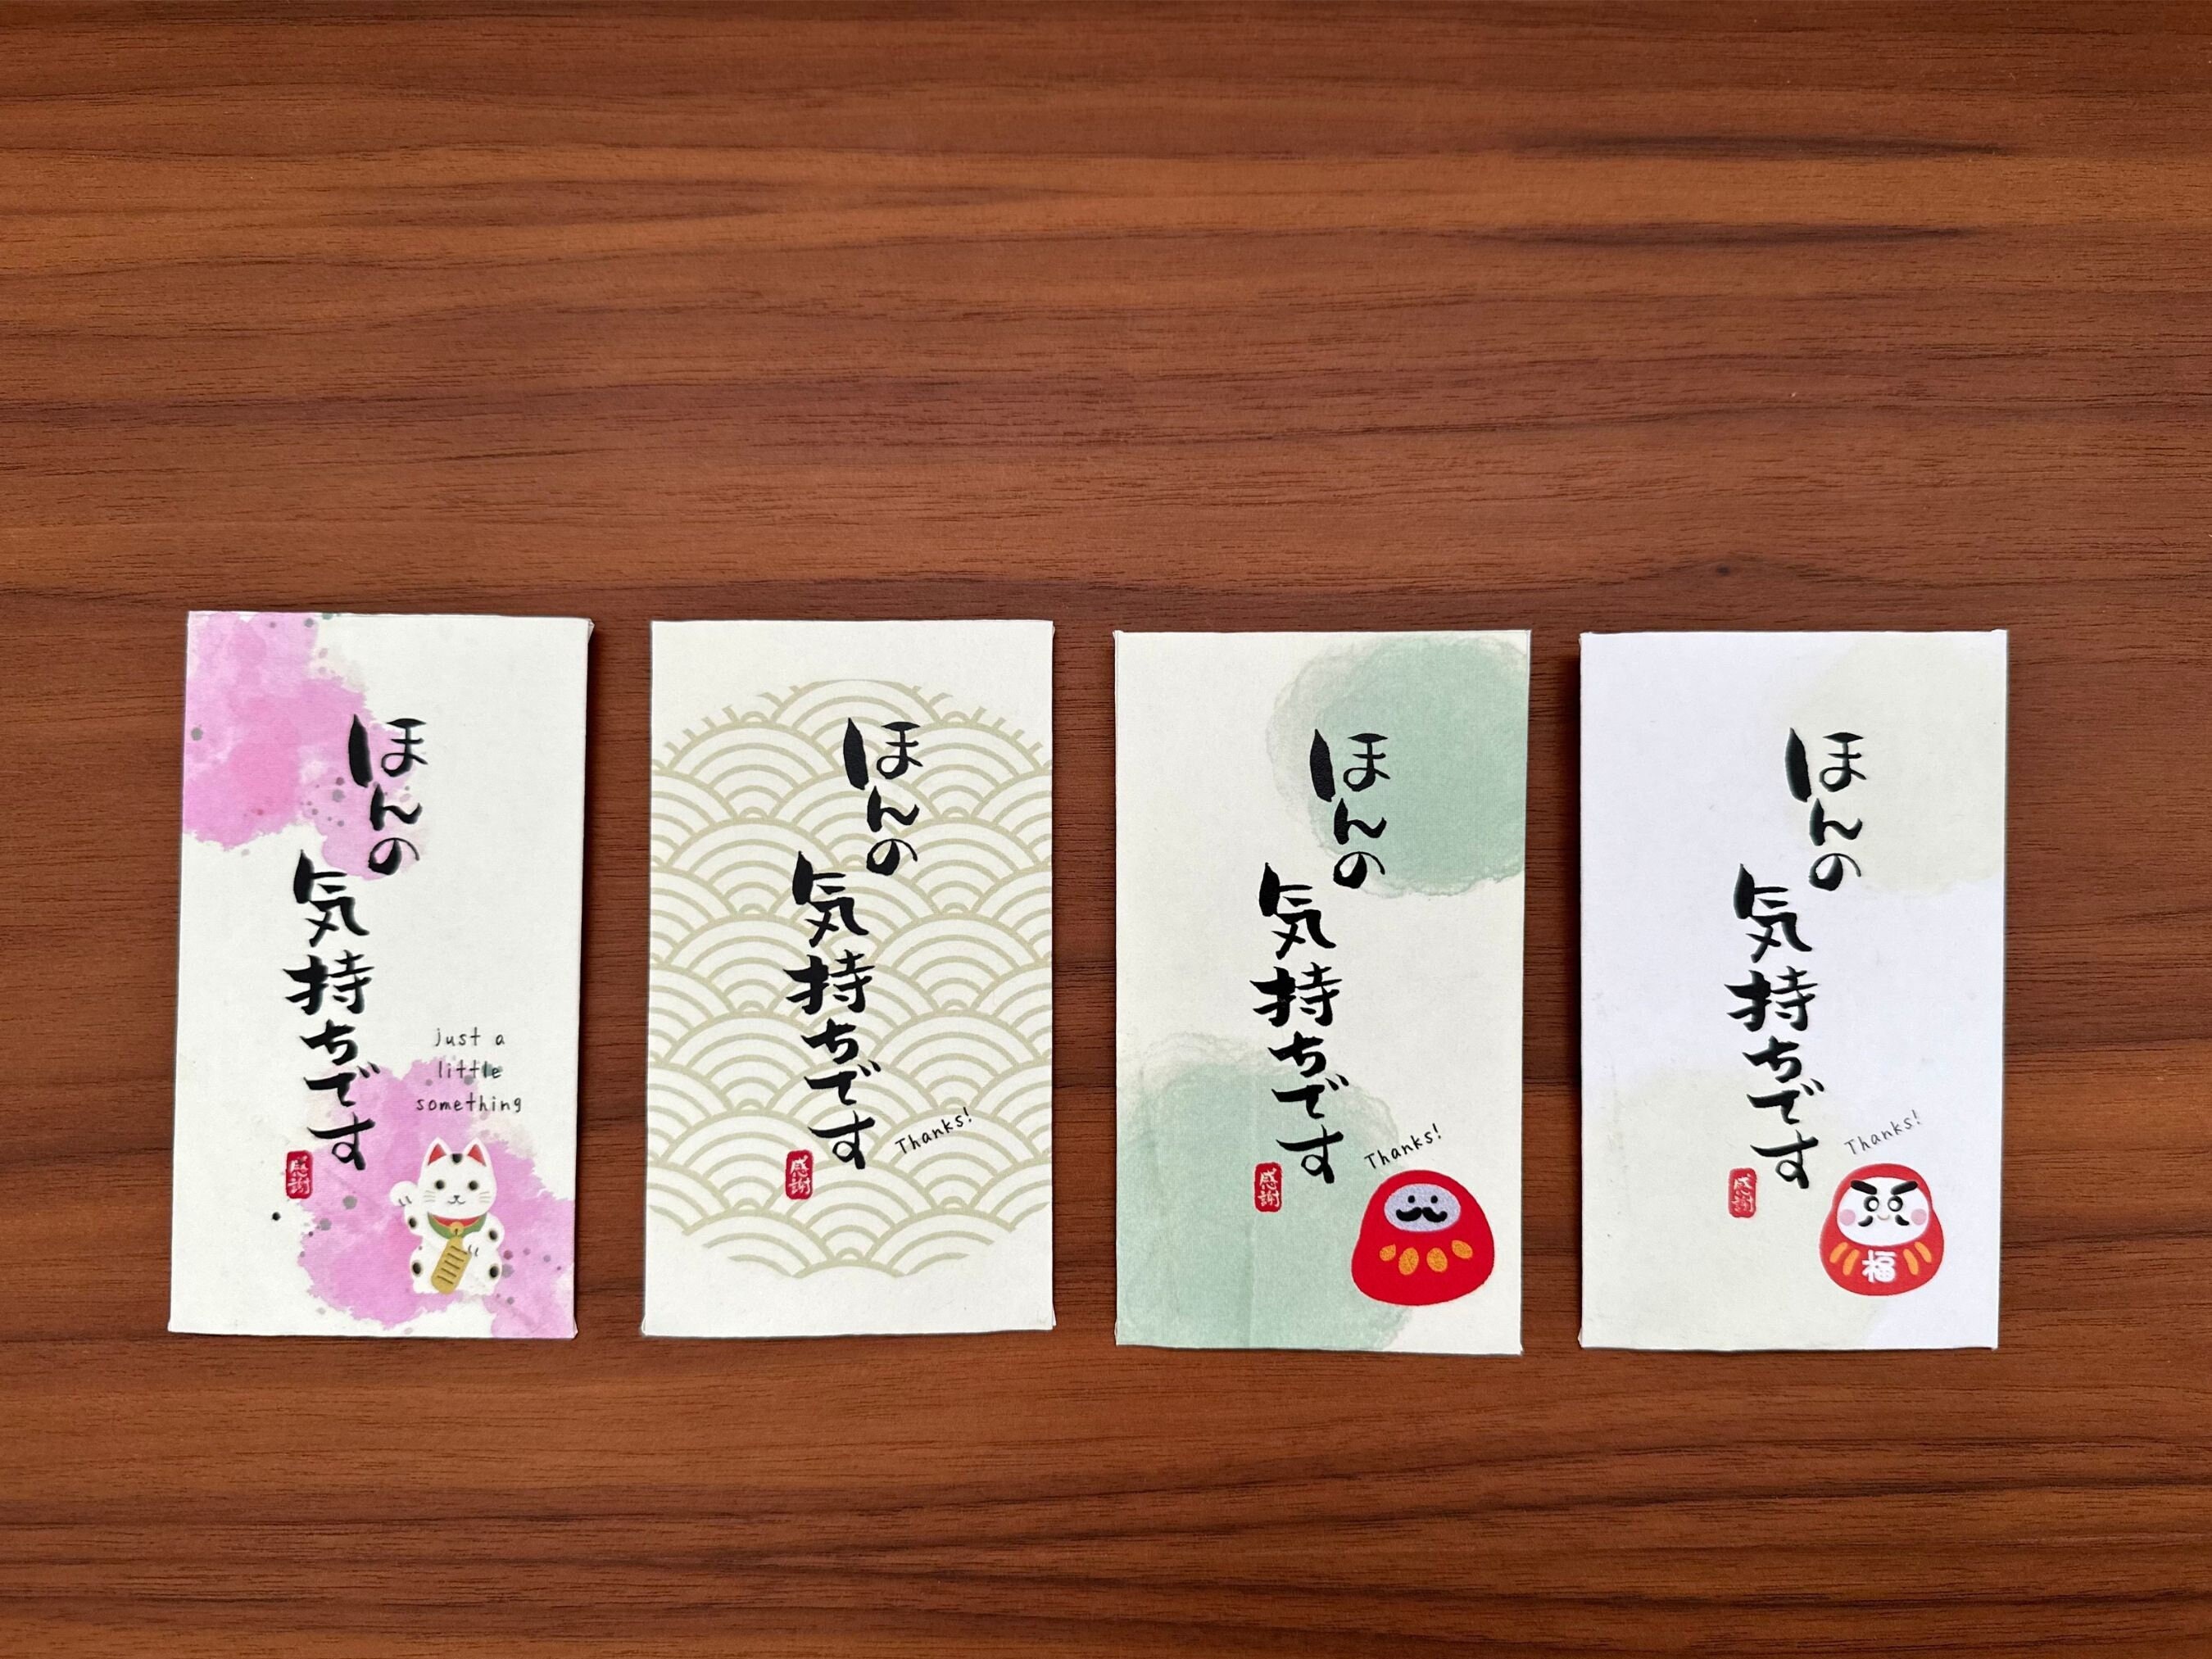 ほんの
気持ちです
感謝
just a
little
something
ほんの
気持ちです
感謝
Thanks!
ほんの
気持ちです
感謝
Thanks!
ほんの
気持ちです
感謝
Thanks!
福